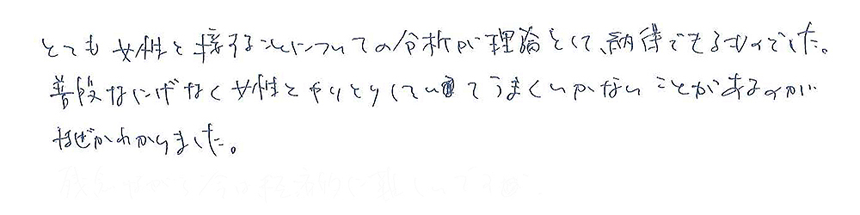 とても女性と接することについての分析が理論として、納得できるものでした。
普段なにげなく女性とやりとりしていてうまくいかないことがあるのが
なぜかわかりました。